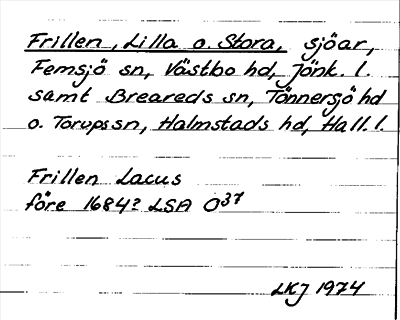 Frillen, Lilla o. Stora, sjöar,
Femsjö sn, Västbo hd, Jönk. l.
samt Breareds sn, Tönnersjö hd
o. Torups sn, Halmstads hd, Hall. l.
Frillen Lacus
före 1684? LSA O37
LKJ 1974